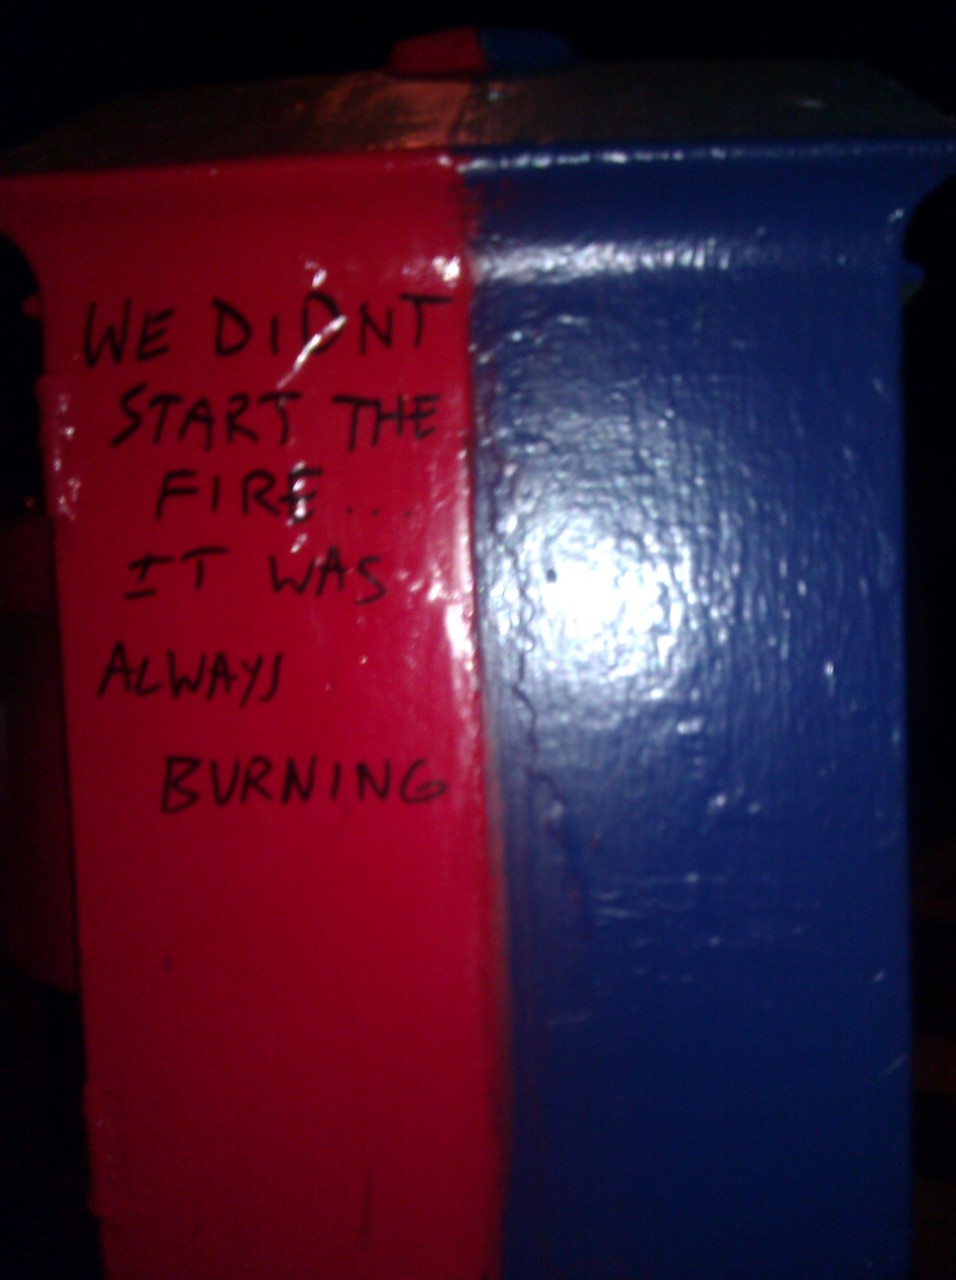 WE DIDNT
START THE
FIRE...
IT WAS
ALWAYS
BURNING